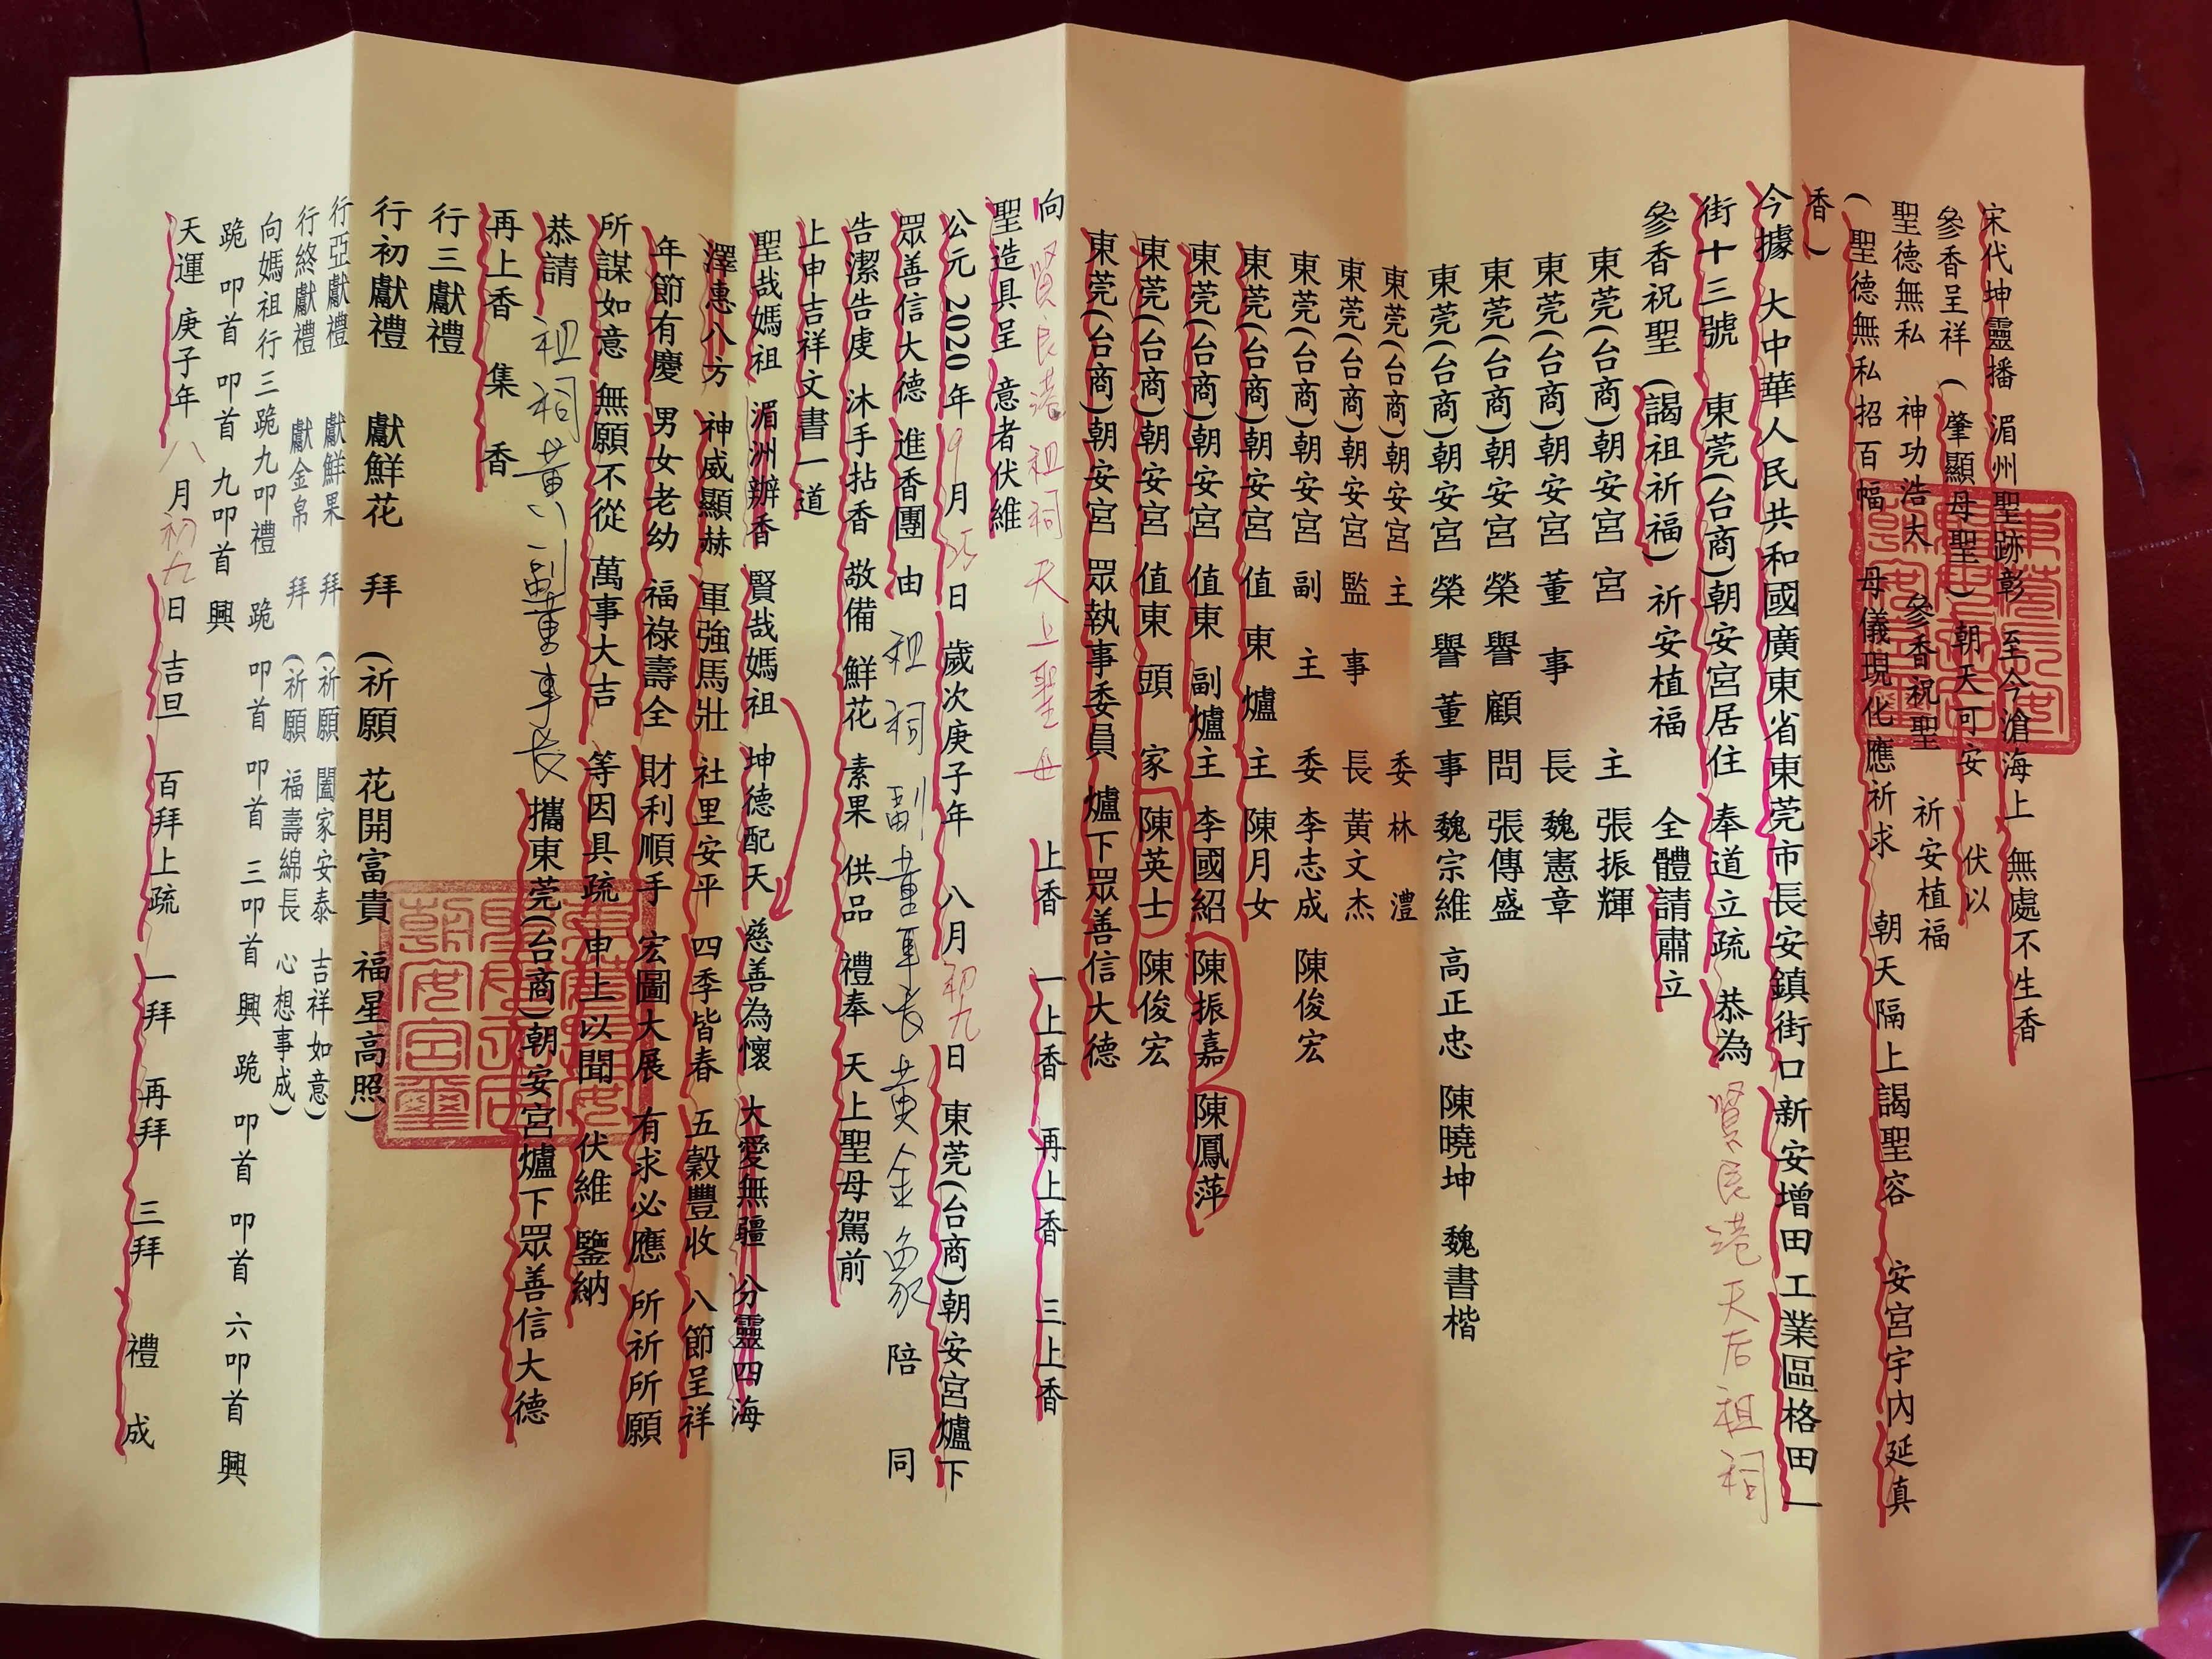 宋代坤靈播 湄州聖跡彰 至今滄海上 無處不生香
參香呈祥 (肇顯母聖) 朝天可安 伏以
聖德無私 神功浩大 參香祝聖 祈安植福
(聖德無私招百幅 母儀現化應祈求 朝天隔上謁聖容 安宮宇內延真
香)
今據 大中華人民共和國廣東省東莞市長安鎮街口新安增田工業區格田一
街十三號 東莞(台商)朝安宮居住 奉道立疏 恭為 賢良港天后祖祠
參香祝聖 (謁祖祈福) 祈安植福 全體請肅立
東莞(台商)朝安宮 宮 主 張振輝
東莞(台商)朝安宮 董事長 魏憲章
東莞(台商)朝安宮 榮譽顧問 張傳盛
東莞(台商)朝安宮 榮譽董事 魏宗維 高正忠 陳曉坤 魏書楷
東莞(台商)朝安宮 主 委 林 澧
東莞(台商)朝安宮 監事長 黃文杰
東莞(台商)朝安宮 副主委 李志成 陳俊宏
東莞(台商)朝安宮 值東爐主 陳月女
東莞(台商)朝安宮 值東 副爐主 李國紹 陳振嘉 陳鳳萍
東莞(台商)朝安宮 值東 頭 家 陳英士 陳俊宏
東莞(台商)朝安宮 眾執事委員 爐下眾善信大德
向 賢良港祖祠天上聖母 上香 一上香 再上香 三上香
聖造具呈 意者伏維
公元 2020 年 9 月 25 日 歲次庚子年 八月初九日 東莞(台商)朝安宮爐下
眾善信大德 進香團 由 祖祠副董事長黃金象 陪 同
告潔告虔 沐手拈香 敬備 鮮花 素果 供品 禮奉 天上聖母駕前
上申吉祥文書一道
聖哉媽祖 湄洲辦香 賢哉媽祖 坤德配天 慈善為懷 大愛無疆 分靈四海
澤惠八方 神威顯赫 軍強馬壯 社里安平 四季皆春 五穀豐收 八節呈祥
年節有慶 男女老幼 福祿壽全 財利順手 宏圖大展 有求必應 所祈所願
所謀如意 無願不從 萬事大吉 等因具疏 申上以聞 伏維 鑒納
恭請 祖祠黃副董事長 攜東莞(台商)朝安宮爐下眾善信大德
再上香 集 香
行三獻禮
行初獻禮 獻鮮花 拜 (祈願 花開富貴 福星高照)
行亞獻禮 獻鮮果 拜 (祈願 闔家安泰 吉祥如意)
行終獻禮 獻金帛 拜 (祈願 福壽綿長 心想事成)
向媽祖行三跪九叩禮 跪 叩首 叩首 三叩首 興 跪 叩首 叩首 六叩首 興
跪 叩首 叩首 九叩首 興
天運 庚子年 八 月 初九 日 吉旦 百拜上疏 一拜 再拜 三拜 禮 成